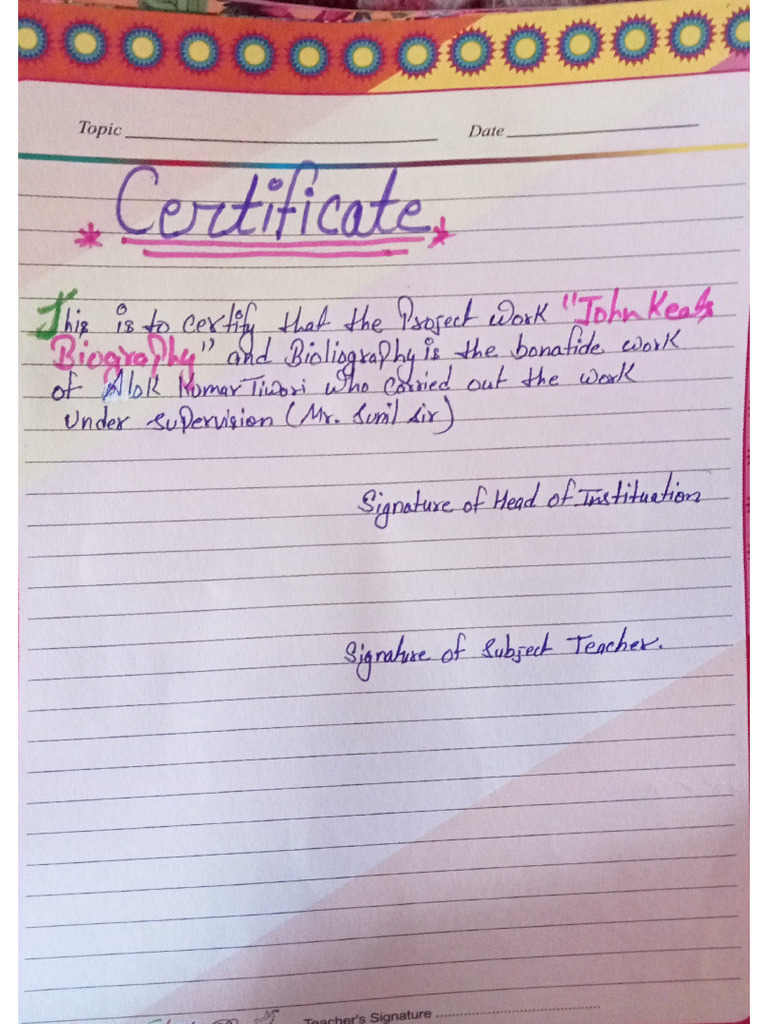 Topic Date
Certificate
This is to certify that the Project work "John Keats
Biography" and Bioliography is the bonafide work
of Alok Kumar Tiwari who carried out the work
under supervision (Mr. Sunil Sir)
Signature of Head of Instituation
Signature of Subject Teacher.
Teacher's Signature